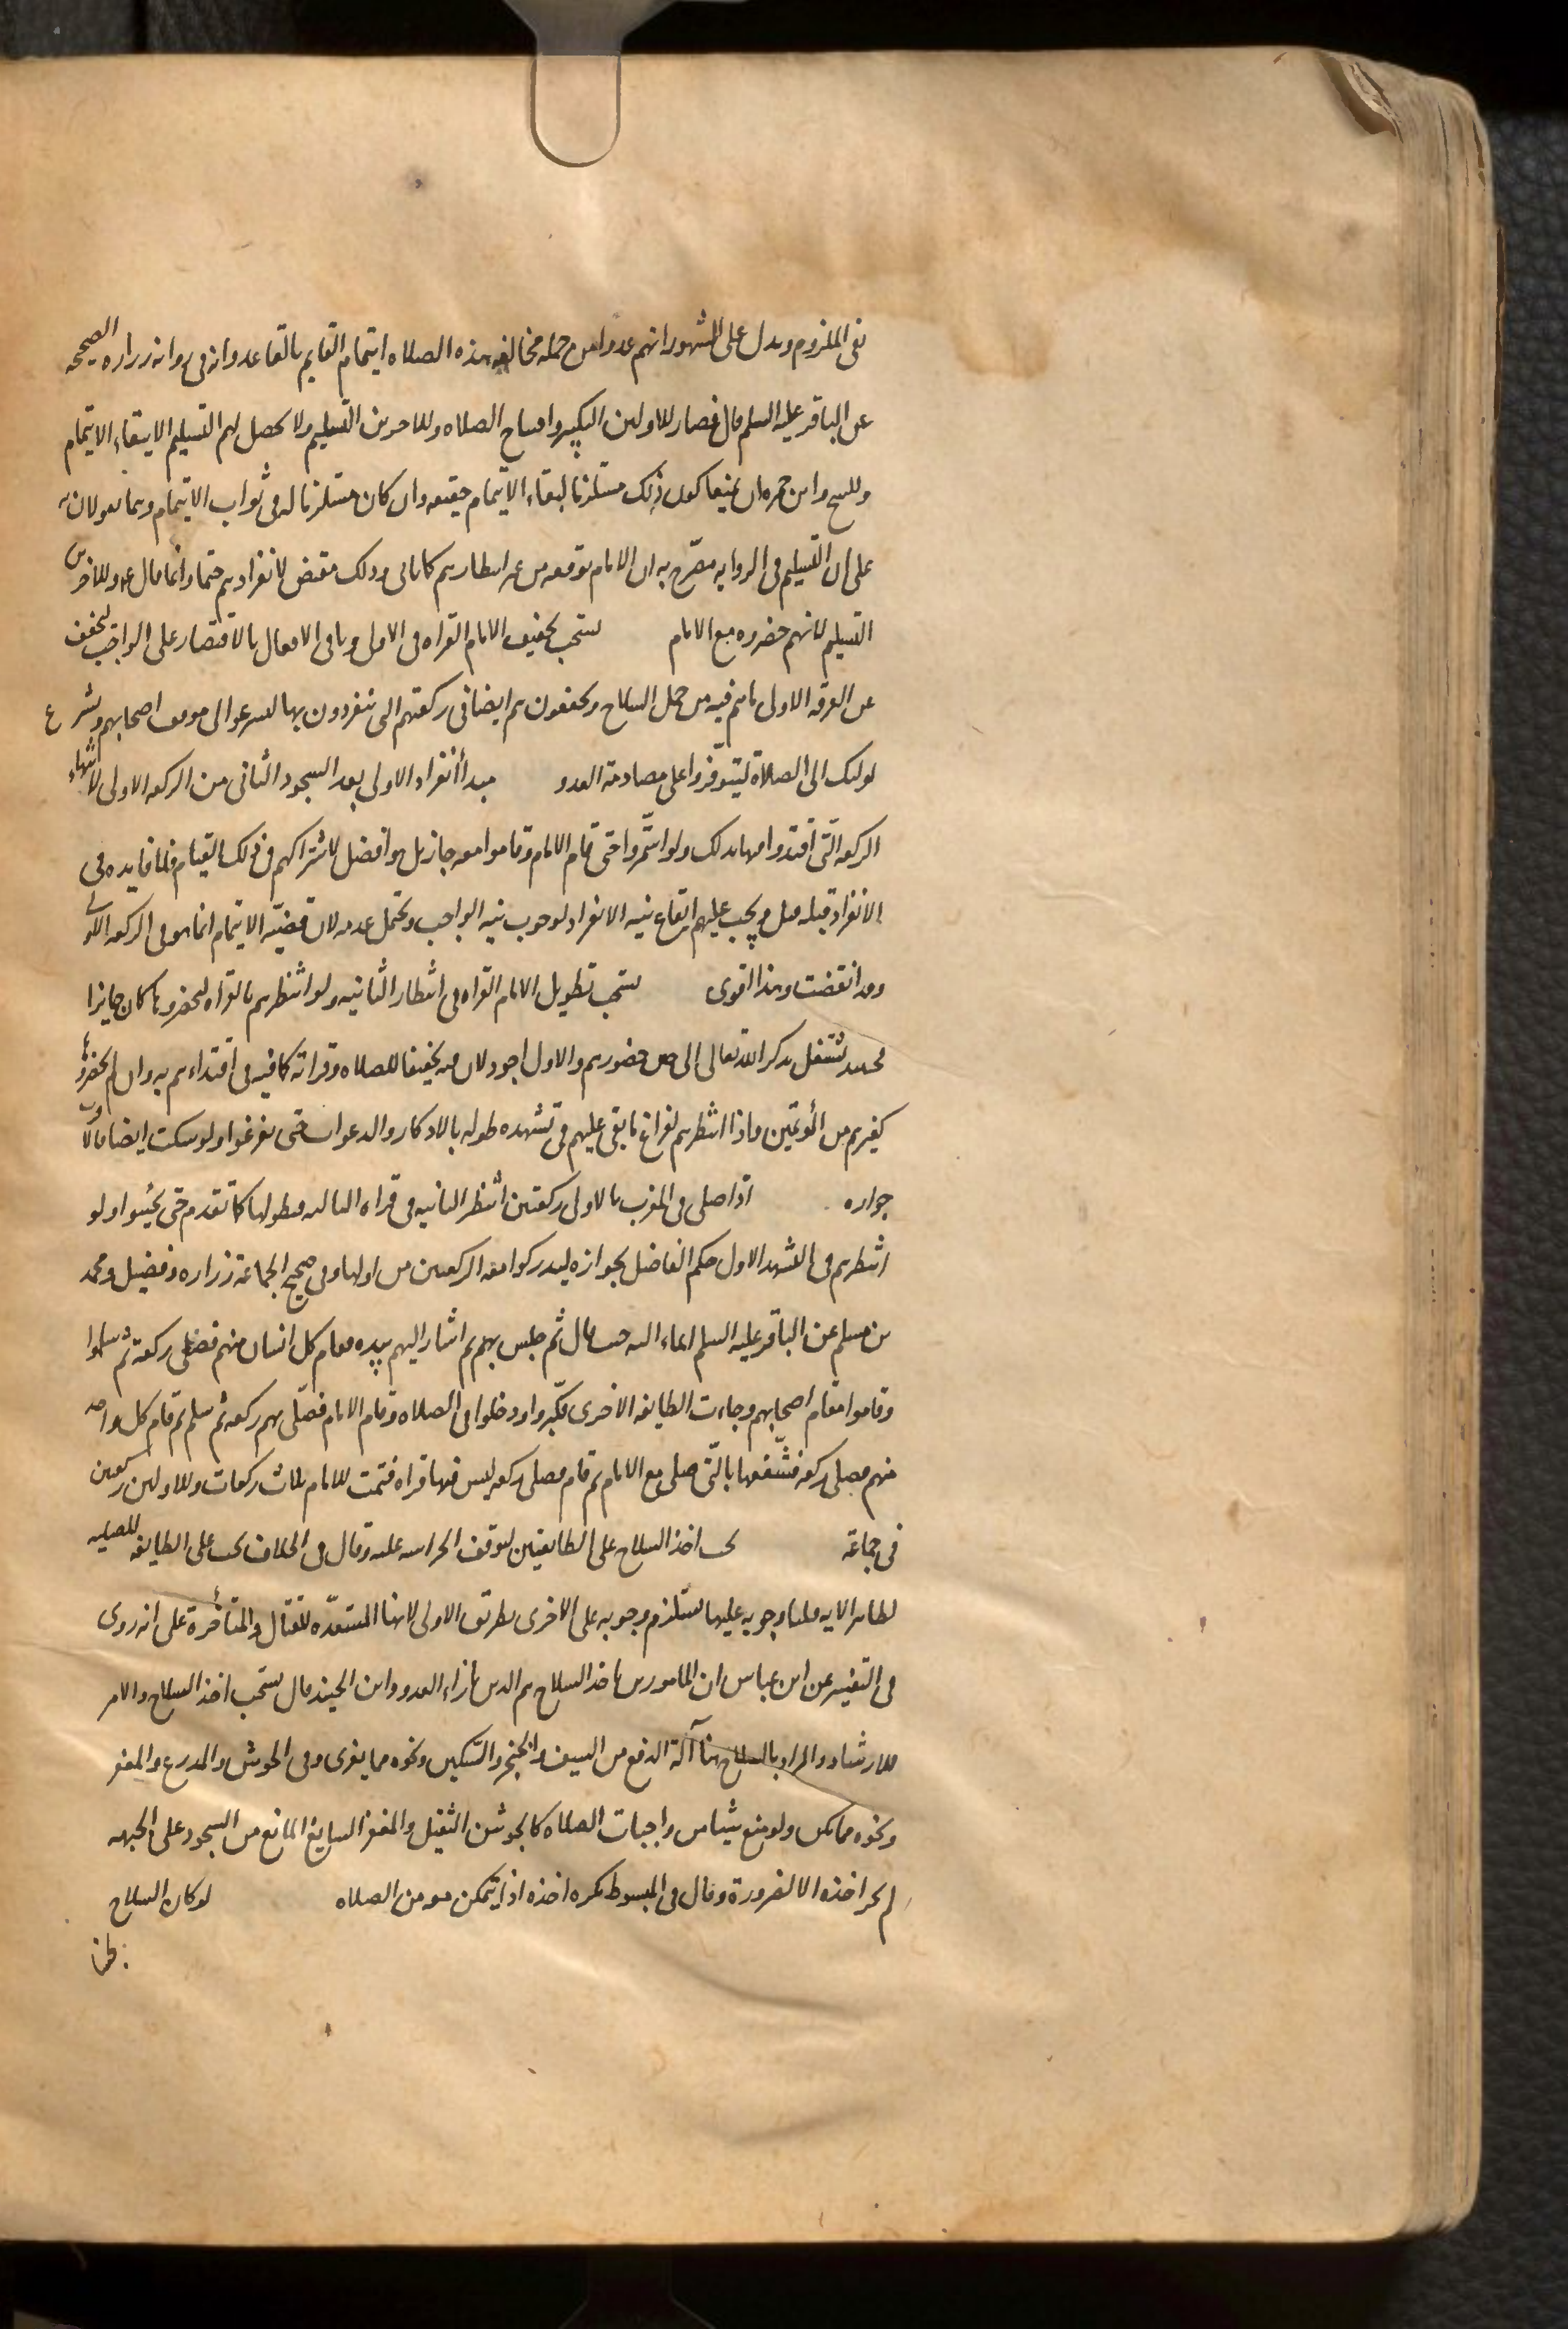 نفى الملزوم ويدل على المشهور انهم عدوا من جملة مخالفة هذه الصلاه ايتمام القايم بالقاعد وانه فى رواية زراره الصحيحه
عن الباقر عليه السلم قال فصار للاولين التكبير وافتتاح الصلاه وللاخرين التسليم ولا يحصل لهم التسليم الا ببقاء الايتمام
وللشيخ وابن حمزه ان يمنعا كون ذلك مستلزما لبقاء الايتمام حقيقه وان كان مستلزما له فى ثواب الايتمام وهما يقولان به
على ان التسليم فى الروايه مصرّح به ان الامام يوقعه من غير انتظارهم كما ياتى وذلك مقتض لانفرادهم حتما وانما قال ع وللاخرين
التسليم لانهم حضروه مع الامام يستحب تخفيف الامام القراه فى الاولى وباقى الافعال بالاقتصار على الواجب ليخفف
عن الفرقه الاولى ما هم فيه من حمل السلاح ويخففون هم ايضا فى ركعتهم التى ينفردون بها ليسرعوا الى موقف اصحابهم ويشرع
اولئك الى الصلاة ليتوفّروا على مصادمة العدو مبدأ انفراد الاولى بعد السجود الثانى من الركعه الاولى لانتهاء
الركعه التى اقتدوا فيها بذلك ولو استمّروا حتى قام الامام وقاموا معه جاز بل هو افضل لاشتراكهم فى ذلك القيام فلا فايده فى
الانفراد قبله قيل ويجب عليهم ايقاع نيه الانفراد لوجوب نيه الواجب ويحتمل عدمه لان قضيّه الايتمام انما هو فى الركعه الاولى
وقد انقضت وهذا اقوى يستحب تطويل الامام القراه فى انتظار الثانيه ولو انتظرهم بالقراه ليحضروها كان جايزا
فحينئذ يشتغل بذكر الله تعالى الى حين حضورهم والاول اجود لان فيه تخفيفا للصلاه وقراته كافيه فى اقتداءهم به وان لم يحضروها
كغيرهم من المؤتمّين واذا انتظرهم لفراغ ما بقى عليهم فى تشهده طوله بالاذكار والدعوات حتى يفرغوا ولو سكت ايضا فالاقرب
جوازه اذا صلى فى المغرب بالاولى ركعتين انتظر الثانيه فى قراه الثالثه فيطولها كما تقدم حتى يجيئوا ولو
انتظرهم فى التشهد الاول حكم الفاضل بجوازه ليدركوا معه الركعتين من اولها وفى صحيح الجماعة زراره وفضيل ومحمد
بن مسلم عن الباقر عليه السلم ايماء اليه حيث قال ثم جلس بهم ثم اشار اليهم بيده فقام كل انسان منهم فصلى ركعة ثم سلموا
وقاموا مقام اصحابهم وجاءت الطايفه الاخرى فكبّروا ودخلوا فى الصلاه وقام الامام فصلّى بهم ركعه ثم سلم ثم قام كل واحد
منهم فصلى ركعه فشّفعها بالّتى صلى مع الامام ثم قام فصلى ركعه ليس فيها قراه فتمت للامام ثلاث ركعات وللاولين ركعتين
فى جماعة يجب اخذ السلاح على الطايفتين لتوقف الحراسه عليه وقال فى الخلاف يجب على الطايفه المصليه
لظاهر الايه قلنا وجوبه عليها يستلزم وجوبه على الاخرى بطريق الاولى لانها المستعدّه للقتال والمتأخرة على انه روى
فى التفسير عن ابن عباس ان المامورين باخذ السلاح هم الذين بازاء العدو وابن الجنيد قال يستحب اخذ السلاح والامر
للارشاد والمراد بالسلاح هنا آلة الدفع من السيف والخنجر والسّكين ونحوه مما يفرى وفى الجوشن والدرع والمغفر
ونحوه مما يكن ولو منع شيئا من واجبات الصلاه كالجوشن الثقيل والمغفر السابغ المانع من السجود على الجبهه
لم يجز اخذه الا لضرورة وقال فى المبسوط يكره اخذه اذ لا يتمكن معه من الصلاه لو كان السلاح
نجسا